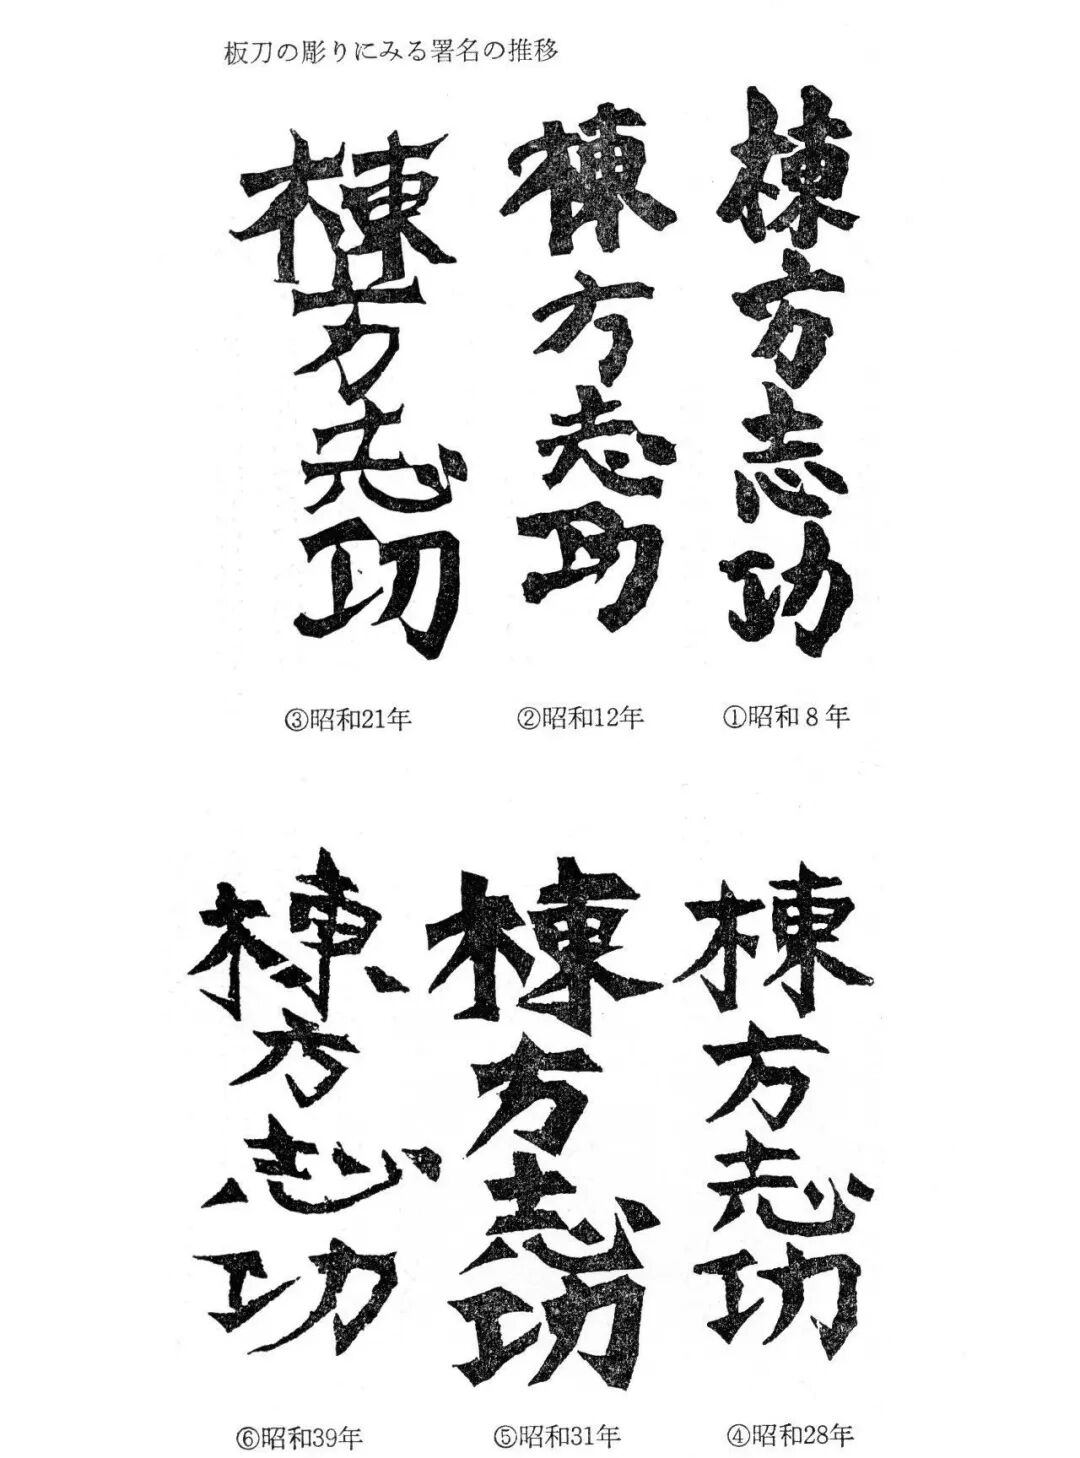 板刀の彫りにみる署名の推移
棟方志功
①昭和8年
棟方志功
②昭和12年
棟方志功
③昭和21年
棟方志功
④昭和28年
棟方志功
⑤昭和31年
棟方志功
⑥昭和39年